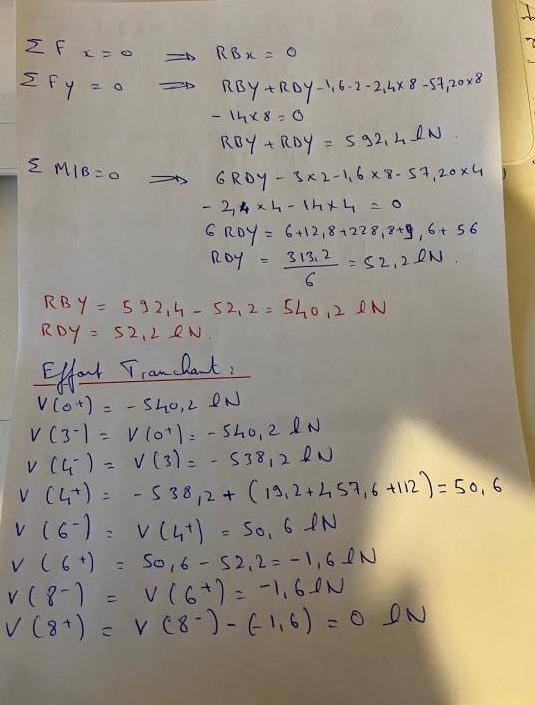 Σ F x = 0 ⇒ RBx = 0
Σ F y = 0 ⇒ RBY + RDY - 1,6 - 2 - 2,4 x 8 - 57,20 x 8
- 14 x 8 = 0
RBY + RDY = 592,4 lN.
Σ M/B = 0 ⇒ 6 RDY - 3 x 2 - 1,6 x 8 - 57,20 x 4
- 2,4 x 4 - 14 x 4 = 0
6 RDY = 6 + 12,8 + 228,8 + 9,6 + 56
RDY = 313,2 / 6 = 52,2 lN.
RBY = 592,4 - 52,2 = 540,2 lN
RDY = 52,2 lN.
Effort Tranchant :
V(0+) = - 540,2 lN
V(3-) = V(0+) = - 540,2 lN
V(4-) = V(3) = - 538,2 lN
V(4+) = - 538,2 + (19,2 + 457,6 + 112) = 50,6
V(6-) = V(4+) = 50,6 lN
V(6+) = 50,6 - 52,2 = - 1,6 lN
V(8-) = V(6+) = -1,6 lN
V(8+) = V(8-) - (-1,6) = 0 lN